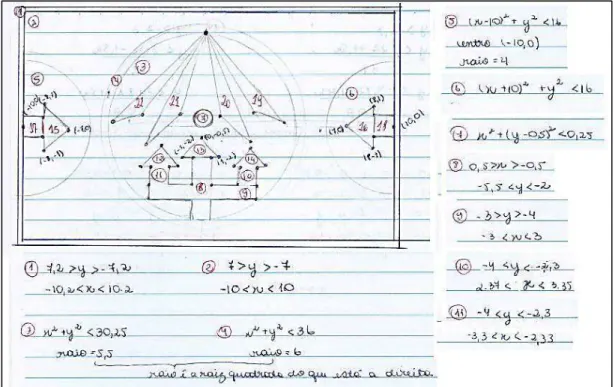 ①
②
③
④
⑤
⑥
(-8,1)
(8,1)
22
21
20
19
17
15
(-7,0)
(7,0)
16
18
(10,0)
(-8,-1)
(8,-1)
⑫
⑬
⑭
⑪
⑩
⑧
⑨
⑤ (x-10)² + y² < 16
centro (-10,0)
raio = 4
⑥ (x+10)² + y² < 16
⑦ x² + (y-0,5)² < 0,25
⑧ 0,5 > x > -0,5
-5,5 < y < -2
⑨ -3 > y > -4
-3 < x < 3
⑩ -4 < y < -2,3
2.37 < x < 3.35
⑪ -4 < y < -2,3
-3,3 < x < -2,33
① 7,2 > y > -7,2
-10,2 < x < 10.2
② 7 > y > -7
-10 < x < 10
③ x² + y² < 30,25
raio = 5,5
④ x² + y² < 36
raio = 6
raio é a raiz quadrada do que está a direita